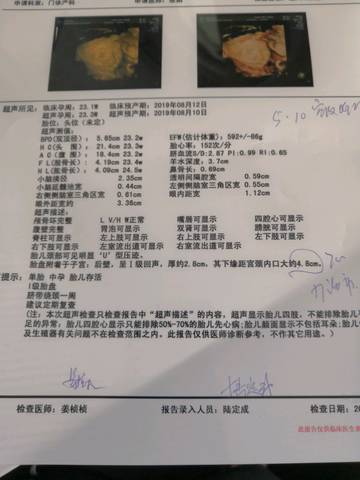 申请科室：门诊产科
超声所见：临床孕周：23.1W 临床预产期：2019年08月12日
超声孕周：23.3W 超声预产期：2019年08月10日
胎位：头位（未定）
超声测值：
BPD(双顶径)： 5.65cm 23.2w EFW(估计体重)：592+/-86g
H C(头 围)： 21.4cm 23.3w 胎心率：152次/分
A C(腹 围)： 18.4cm 23.2w 脐血流S/D:2.87 PI:0.99 RI:0.65
F L(股骨长)： 4.19cm 23.4w 羊水深度：3.7cm
H L(肱骨长)： 4.09cm 24.5w 鼻骨长：0.69cm
小脑横径 2.35cm 透明间隔腔宽 0.59cm
小脑延髓池宽 0.44cm 左侧侧脑室三角区宽 0.55cm
右侧侧脑室三角区宽 0.61cm 眼内距宽 1.12cm
眼外距宽约 3.36cm
超声描述：
颅骨环完整 L V/H W正常 嘴唇可显示 四腔心可显示
腹壁完整 胃泡可显示 双肾可显示 膀胱可显示
脊柱可显示 左上肢可显示 右上肢可显示 左下肢可显示
右下肢可显示 左室流出道可显示 右室流出道可显示
胎儿颈部可见明显‘U’型压迹。
胎盘附着于子宫：后壁，呈Ⅰ级回声，厚约2.8cm，其下缘距宫颈内口大约4.8cm。
提示：单胎 中孕 胎儿存活
Ⅰ级胎盘
脐带绕颈一周
建议定期复查
（注：本次超声检查只检查报告中“超声描述”的内容，超声显示胎儿四肢，不能排除胎儿
足的异常；胎儿四腔心显示只能排除50%-70%的胎儿先心病；胎儿颜面显示不包括耳朵；胎儿
及生殖器有关问题不在检查范围之内。此报告仅供医师诊断参考，不作其它用途。）
检查医师：姜桢桢 报告录入人员：陆定成 检查日期：20
此报告仅供临床医生参